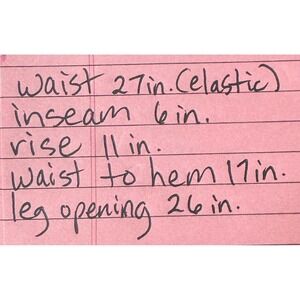 waist 27in. (elastic)
inseam 6in.
rise 11in.
waist to hem 17in.
leg opening 26in.